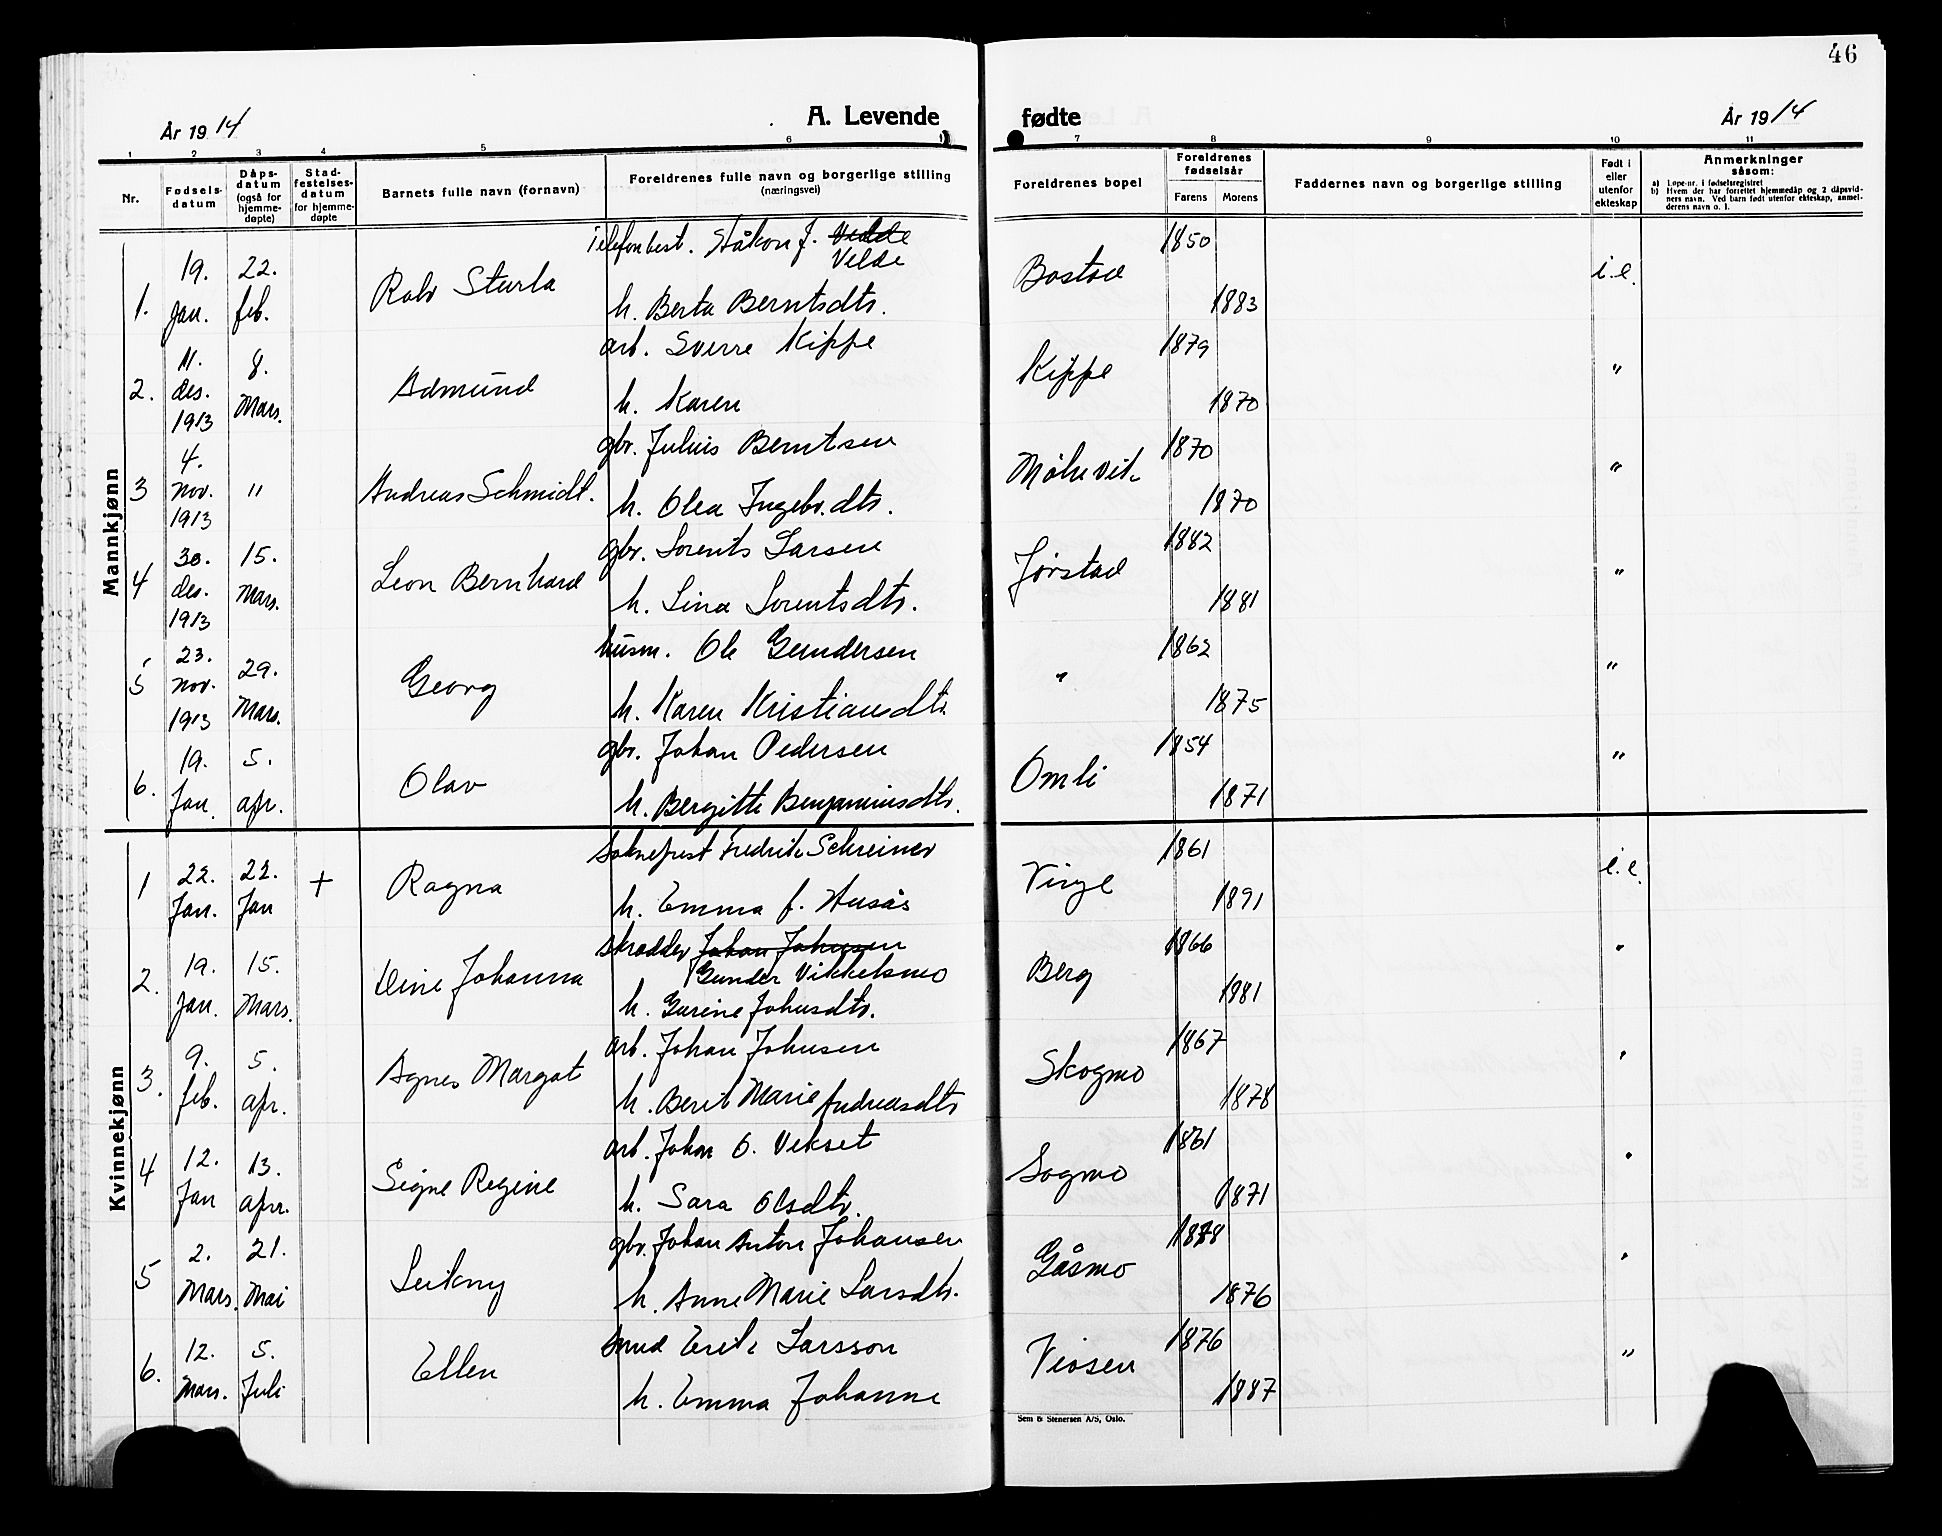 46
År 1914
A. Levende
fødte
År 1914
1 2 3 4 5 6 7 8 9 10 11
Nr.
Fødsels-
datum
Dåps-
datum
(også for
hjemme-
døpte)
Stad-
festelses-
datum
for hjemme-
døpte
Barnets fulle navn (fornavn)
Foreldrenes fulle navn og borgerlige stilling
(næringsvei)
Foreldrenes bopel
Foreldrenes
fødselsår
Farens Morens
Faddernes navn og borgerlige stilling
Født i
eller
utenfor
ekteskap
Anmerkninger
såsom:
a) Løpe-nr. i fødselsregistret
b) Hvem der har forrettet hjemmedåp og 2 dåpsvid-
ners navn. Ved barn født utenfor ekteskap, anmel-
derens navn o. l.
Mannkjønn
1. 19. Jan. 22. feb. Rolv Sturla
Telefonbest. Håkon J. Velde
Velde
h. Berta Berntsdtr.
Bostad 1850 1883 i.e.
2. 11. des. 1913 8. Mars. Admund
arb. Sverre Kippe
h. Karen
Kippe 1879 1870 "
3 4. nov. 1913 " Andreas Schmidt.
gbr. Julius Berntsen
h. Olea Ingebr.dtr.
1870 1870 "
4 30. des. 1913 15. Mars. Leon Bernhard
gbr. Lorents Larsen
h. Lina Lorentsdtr.
Jørstad 1882 1881 "
5 23. nov. 1913 29. Mars. Georg
husm. Ole Gundersen
h. Karen Kristiansdtr.
" 1862 1875 "
6. 19. Jan. 5. apr. Olav
gbr. Johan Pedersen
h. Bergitte Benjaminsdtr.
Omli 1854 1871 "
Kvinnekjønn
1 22. Jan. 22. Jan + Ragna
Sokneprest Fredrik Schreiner
h. Emma f. Husås
Vinje 1861 1891 i.e.
2. 19. Jan. 15. Mars. Dine Johanna
skrædder Johan Johnsen
Gunder Vikkelsmo
h. Gurine Johnsdtr.
Berg 1866 1981 "
3. 9. feb. 5. apr. Agnes Margot
arb. Johan Johnsen
h. Berit Marie Andreasdtr
Skogmo 1867 1878 "
4 12. Jan 13. apr. Signe Regine
arb. Johan O. Vekset
h. Sara Olsdtr.
Sogmo 1861 1871 "
5 2. Mars. 21. Mai Leikny
gbr. Johan Anton Johansen
h. Anne Marie Larsdtr.
Gåsmo 1878 1876 "
6. 12. Mars. 5. Juli Ellen
smed Erik Larsson
h. Emma Johanne
Viosen 1876 1887 "
Sem & Stenersen A/S, Oslo.